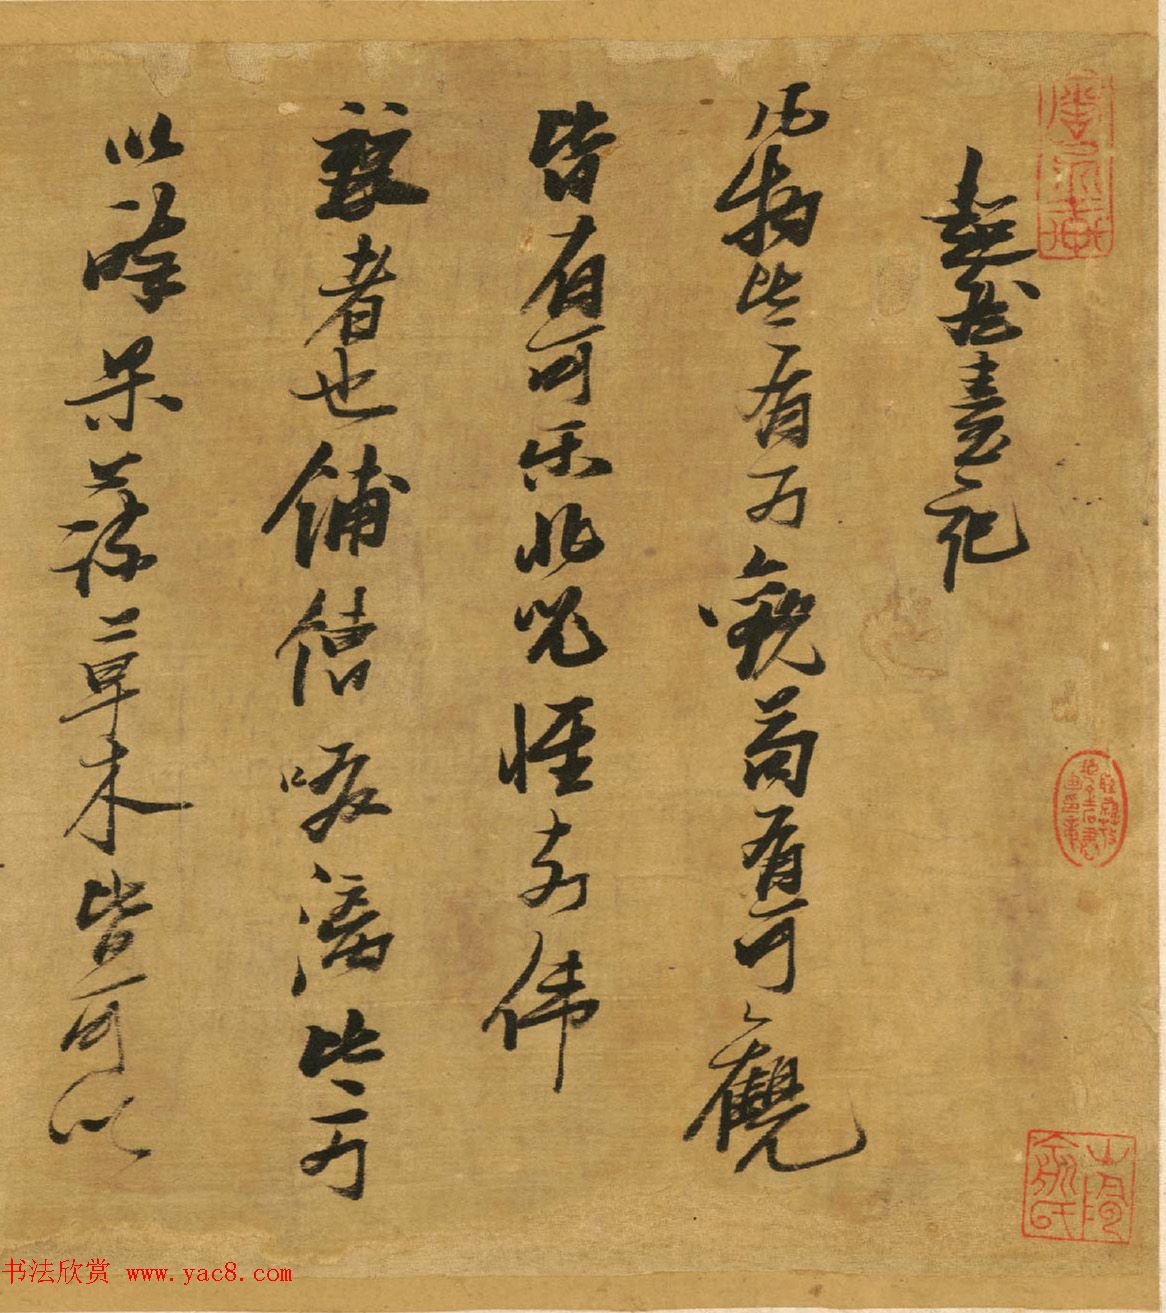 超然臺記
凡物皆有可觀苟有可觀
皆有可樂非必恠奇偉
麗者也餔糟啜漓皆可
以醉果蔬草木皆可以
书法欣赏 www.yac8.com